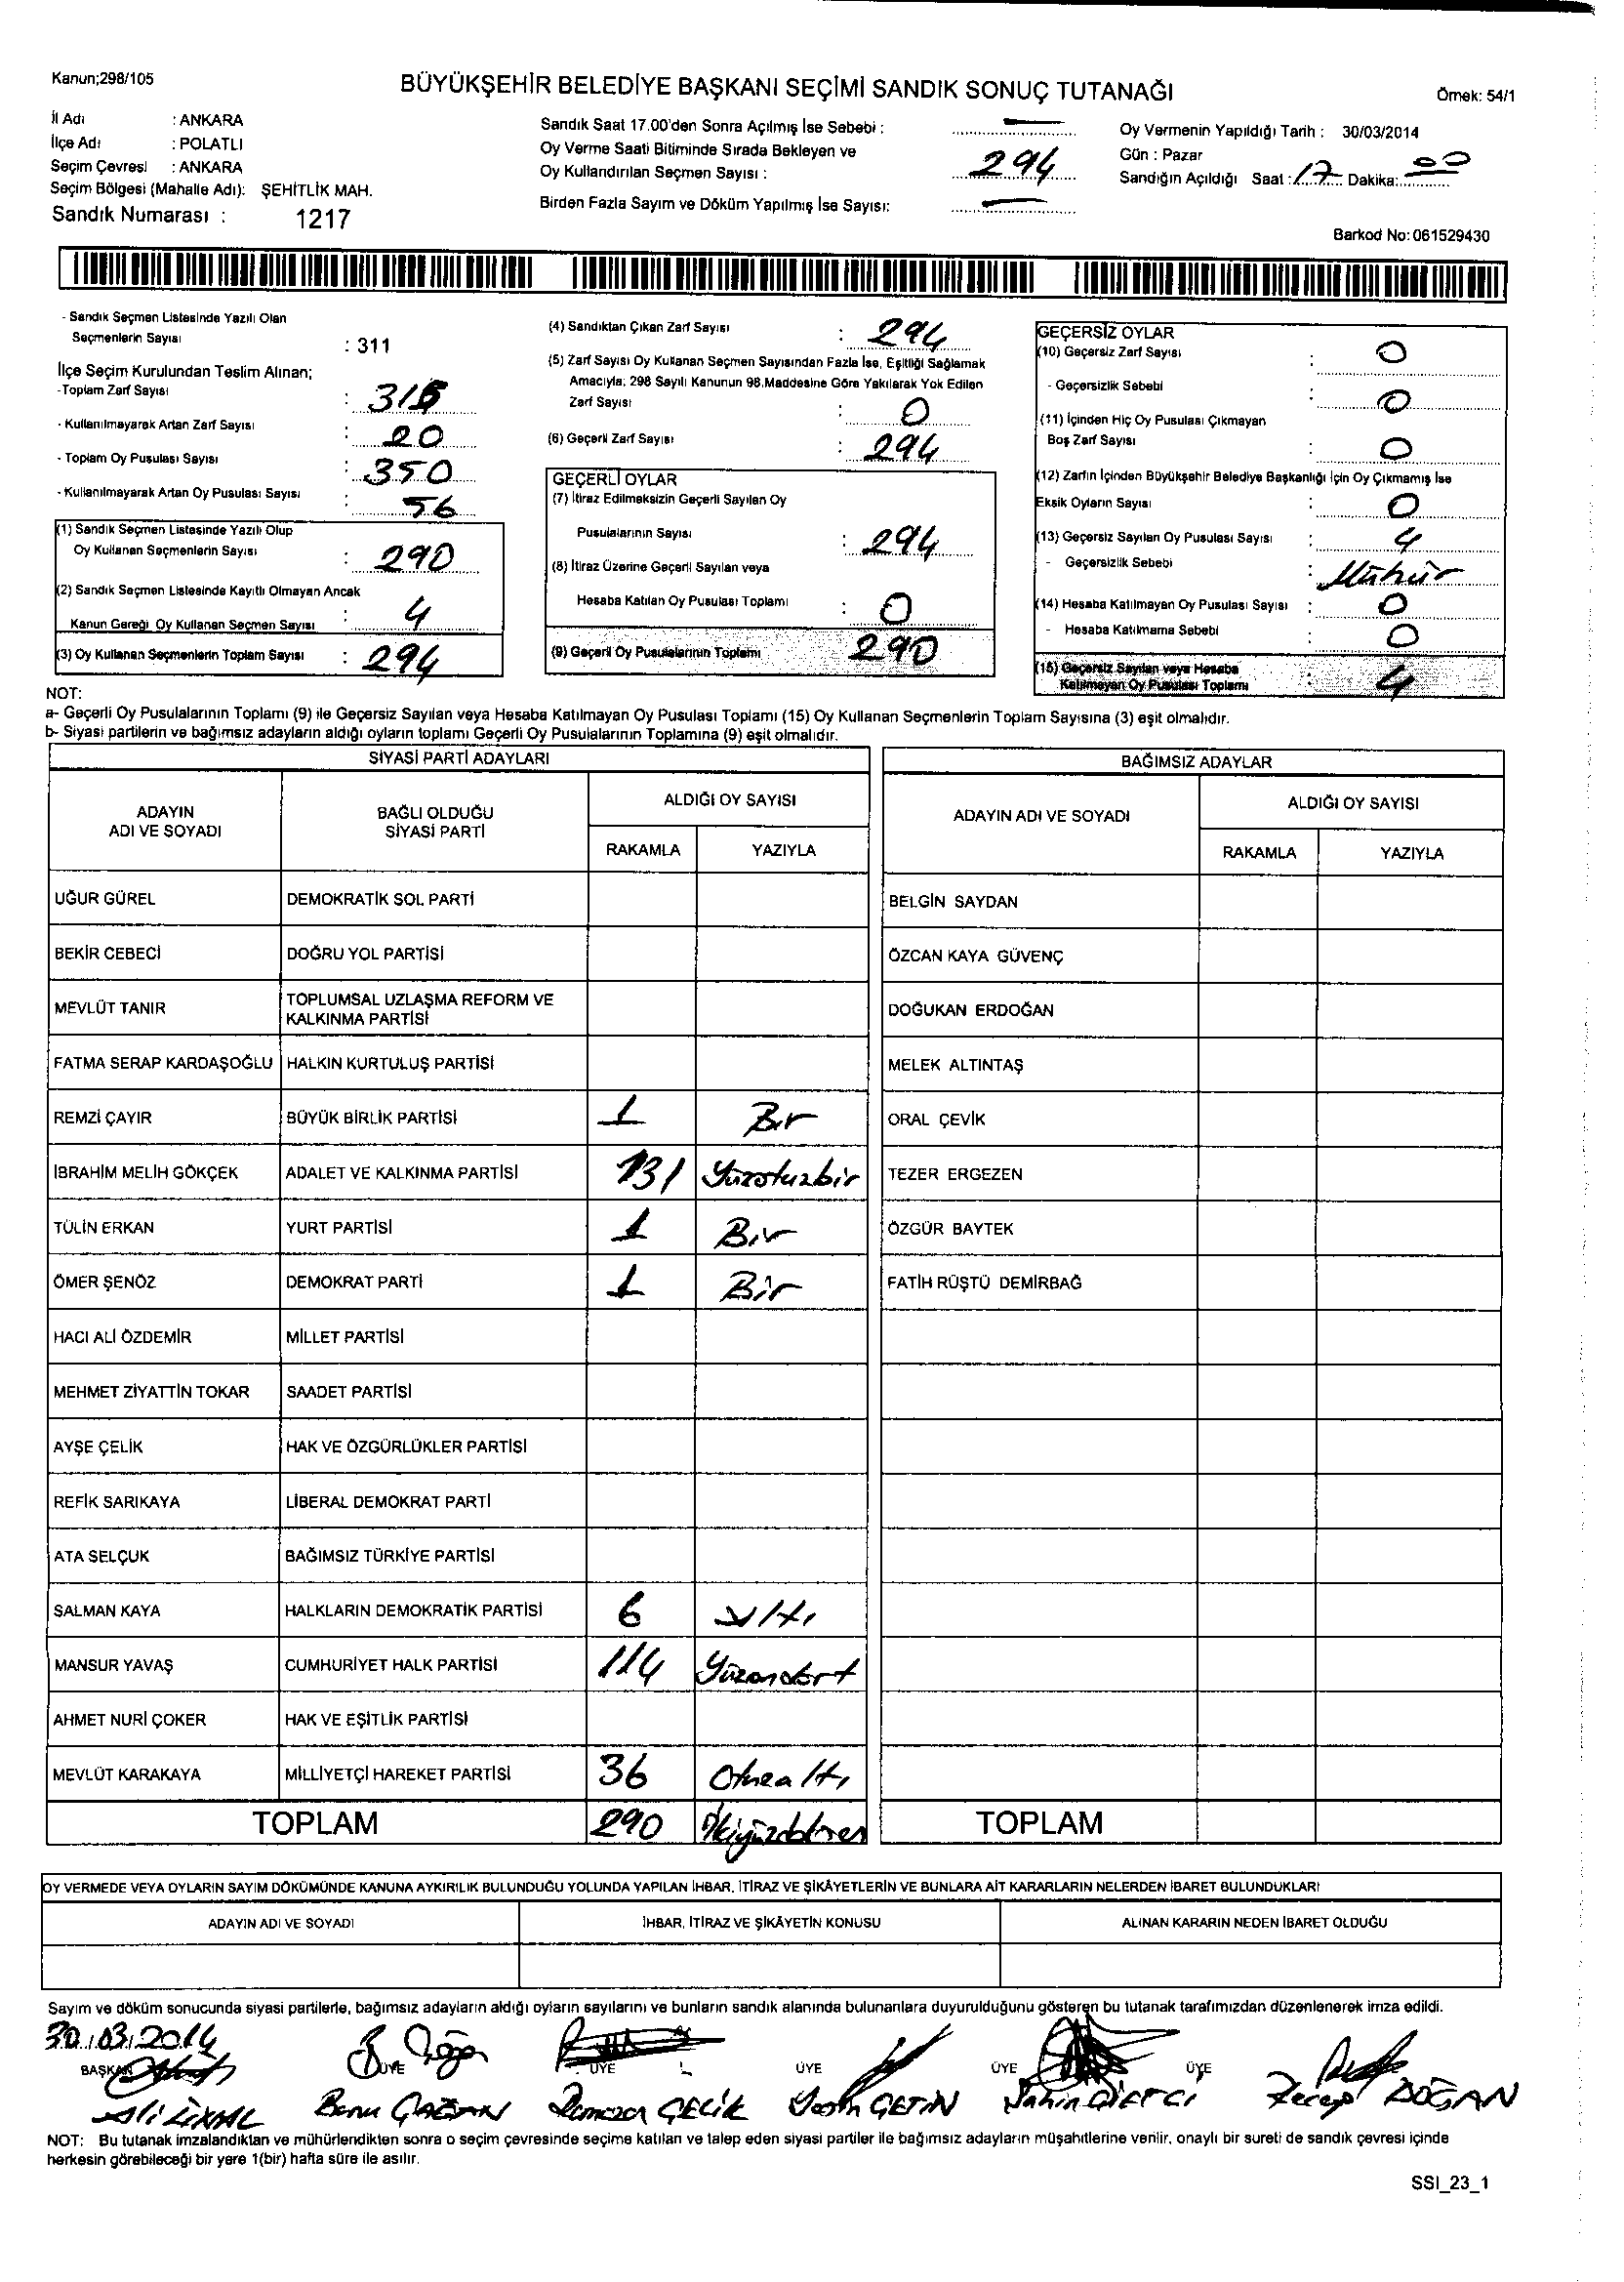 Kanun;298/105
BÜYÜKŞEHİR BELEDİYE BAŞKANI SEÇİMİ SANDIK SONUÇ TUTANAĞI
Örnek: 54/1
İl Adı : ANKARA
İlçe Adı : POLATLI
Seçim Çevresi : ANKARA
Seçim Bölgesi (Mahalle Adı): ŞEHİTLİK MAH.
Sandık Numarası : 1217
Sandık Saat 17.00'den Sonra Açılmış İse Sebebi : —
Oy Verme Saati Bitiminde Sırada Bekleyen ve
Oy Kullandırılan Seçmen Sayısı : 294
Birden Fazla Sayım ve Döküm Yapılmış İse Sayısı: —
Oy Vermenin Yapıldığı Tarih : 30/03/2014
Gün : Pazar
Sandığın Açıldığı Saat : 17 Dakika: 00
Barkod No: 061529430
- Sandık Seçmen Listesinde Yazılı Olan
Seçmenlerin Sayısı : 311
İlçe Seçim Kurulundan Teslim Alınan;
-Toplam Zarf Sayısı :
- Kullanılmayarak Artan Zarf Sayısı : 20
- Toplam Oy Pusulası Sayısı : 350
- Kullanılmayarak Artan Oy Pusulası Sayısı : 56
(1) Sandık Seçmen Listesinde Yazılı Olup
Oy Kullanan Seçmenlerin Sayısı : 290
(2) Sandık Seçmen Listesinde Kayıtlı Olmayan Ancak
Kanun Gereği Oy Kullanan Seçmen Sayısı : 4
(3) Oy Kullanan Seçmenlerin Toplam Sayısı : 294
(4) Sandıktan Çıkan Zarf Sayısı : 294
(5) Zarf Sayısı Oy Kullanan Seçmen Sayısından Fazla İse, Eşitliği Sağlamak
Amacıyla; 298 Sayılı Kanunun 98.Maddesine Göre Yakılarak Yok Edilen
Zarf Sayısı : 0
(6) Geçerli Zarf Sayısı : 294
GEÇERLİ OYLAR
(7) İtiraz Edilmeksizin Geçerli Sayılan Oy
Pusulalarının Sayısı : 294
(8) İtiraz Üzerine Geçerli Sayılan veya
Hesaba Katılan Oy Pusulası Toplamı : 0
(9) Geçerli Oy Pusulalarının Toplamı 290
GEÇERSİZ OYLAR
(10) Geçersiz Zarf Sayısı : 0
- Geçersizlik Sebebi : 0
(11) İçinden Hiç Oy Pusulası Çıkmayan
Boş Zarf Sayısı : 0
(12) Zarfın İçinden Büyükşehir Belediye Başkanlığı İçin Oy Çıkmamış İse
Eksik Oyların Sayısı : 0
(13) Geçersiz Sayılan Oy Pusulası Sayısı : 4
- Geçersizlik Sebebi : Mühür
(14) Hesaba Katılmayan Oy Pusulası Sayısı : 0
- Hesaba Katılmama Sebebi : 0
(15) Geçersiz Sayılan veya Hesaba
Katılmayan Oy Pusulası Toplamı : 4
NOT:
a- Geçerli Oy Pusulalarının Toplamı (9) ile Geçersiz Sayılan veya Hesaba Katılmayan Oy Pusulası Toplamı (15) Oy Kullanan Seçmenlerin Toplam Sayısına (3) eşit olmalıdır.
b- Siyasi partilerin ve bağımsız adayların aldığı oyların toplamı Geçerli Oy Pusulalarının Toplamına (9) eşit olmalıdır.
SİYASİ PARTİ ADAYLARI
ADAYIN ADI VE SOYADI BAĞLI OLDUĞU SİYASİ PARTİ ALDIĞI OY SAYISI
RAKAMLA YAZIYLA
UĞUR GÜREL DEMOKRATİK SOL PARTİ
BEKİR CEBECİ DOĞRU YOL PARTİSİ
MEVLÜT TANIR TOPLUMSAL UZLAŞMA REFORM VE KALKINMA PARTİSİ
FATMA SERAP KARDAŞOĞLU HALKIN KURTULUŞ PARTİSİ
REMZİ ÇAYIR BÜYÜK BİRLİK PARTİSİ 1 Bir
İBRAHİM MELİH GÖKÇEK ADALET VE KALKINMA PARTİSİ 131 Yüzotuzbir
TÜLİN ERKAN YURT PARTİSİ 1 Bir
ÖMER ŞENÖZ DEMOKRAT PARTİ 1 Bir
HACI ALİ ÖZDEMİR MİLLET PARTİSİ
MEHMET ZİYATTİN TOKAR SAADET PARTİSİ
AYŞE ÇELİK HAK VE ÖZGÜRLÜKLER PARTİSİ
REFİK SARIKAYA LİBERAL DEMOKRAT PARTİ
ATA SELÇUK BAĞIMSIZ TÜRKİYE PARTİSİ
SALMAN KAYA HALKLARIN DEMOKRATİK PARTİSİ 6 Altı
MANSUR YAVAŞ CUMHURİYET HALK PARTİSİ 114 Yüzondört
AHMET NURİ ÇOKER HAK VE EŞİTLİK PARTİSİ
MEVLÜT KARAKAYA MİLLİYETÇİ HAREKET PARTİSİ 36 Otuzaltı
TOPLAM 290 İkiyüzdoksan
BAĞIMSIZ ADAYLAR
ADAYIN ADI VE SOYADI ALDIĞI OY SAYISI
RAKAMLA YAZIYLA
BELGİN SAYDAN
ÖZCAN KAYA GÜVENÇ
DOĞUKAN ERDOĞAN
MELEK ALTINTAŞ
ORAL ÇEVİK
TEZER ERGEZEN
ÖZGÜR BAYTEK
FATİH RÜŞTÜ DEMİRBAĞ
TOPLAM
OY VERMEDE VEYA OYLARIN SAYIM DÖKÜMÜNDE KANUNA AYKIRILIK BULUNDUĞU YOLUNDA YAPILAN İHBAR, İTİRAZ VE ŞİKÂYETLERİN VE BUNLARA AİT KARARLARIN NELERDEN İBARET BULUNDUKLARI
ADAYIN ADI VE SOYADI İHBAR, İTİRAZ VE ŞİKÂYETİN KONUSU ALINAN KARARIN NEDEN İBARET OLDUĞU
Sayım ve döküm sonucunda siyasi partilerle, bağımsız adayların aldığı oyların sayılarını ve bunların sandık alanında bulunanlara duyurulduğunu gösteren bu tutanak tarafımızdan düzenlenerek imza edildi.
30.03.2014
BAŞKAN ÜYE ÜYE ÜYE ÜYE ÜYE
Ali Banu Ramazan ÇELİK ÇETİN Şahin Recep DOĞAN
NOT: Bu tutanak imzalandıktan ve mühürlendikten sonra o seçim çevresinde seçime katılan ve talep eden siyasi partiler ile bağımsız adayların müşahitlerine verilir, onaylı bir sureti de sandık çevresi içinde
herkesin görebileceği bir yere 1(bir) hafta süre ile asılır.
SSI_23_1